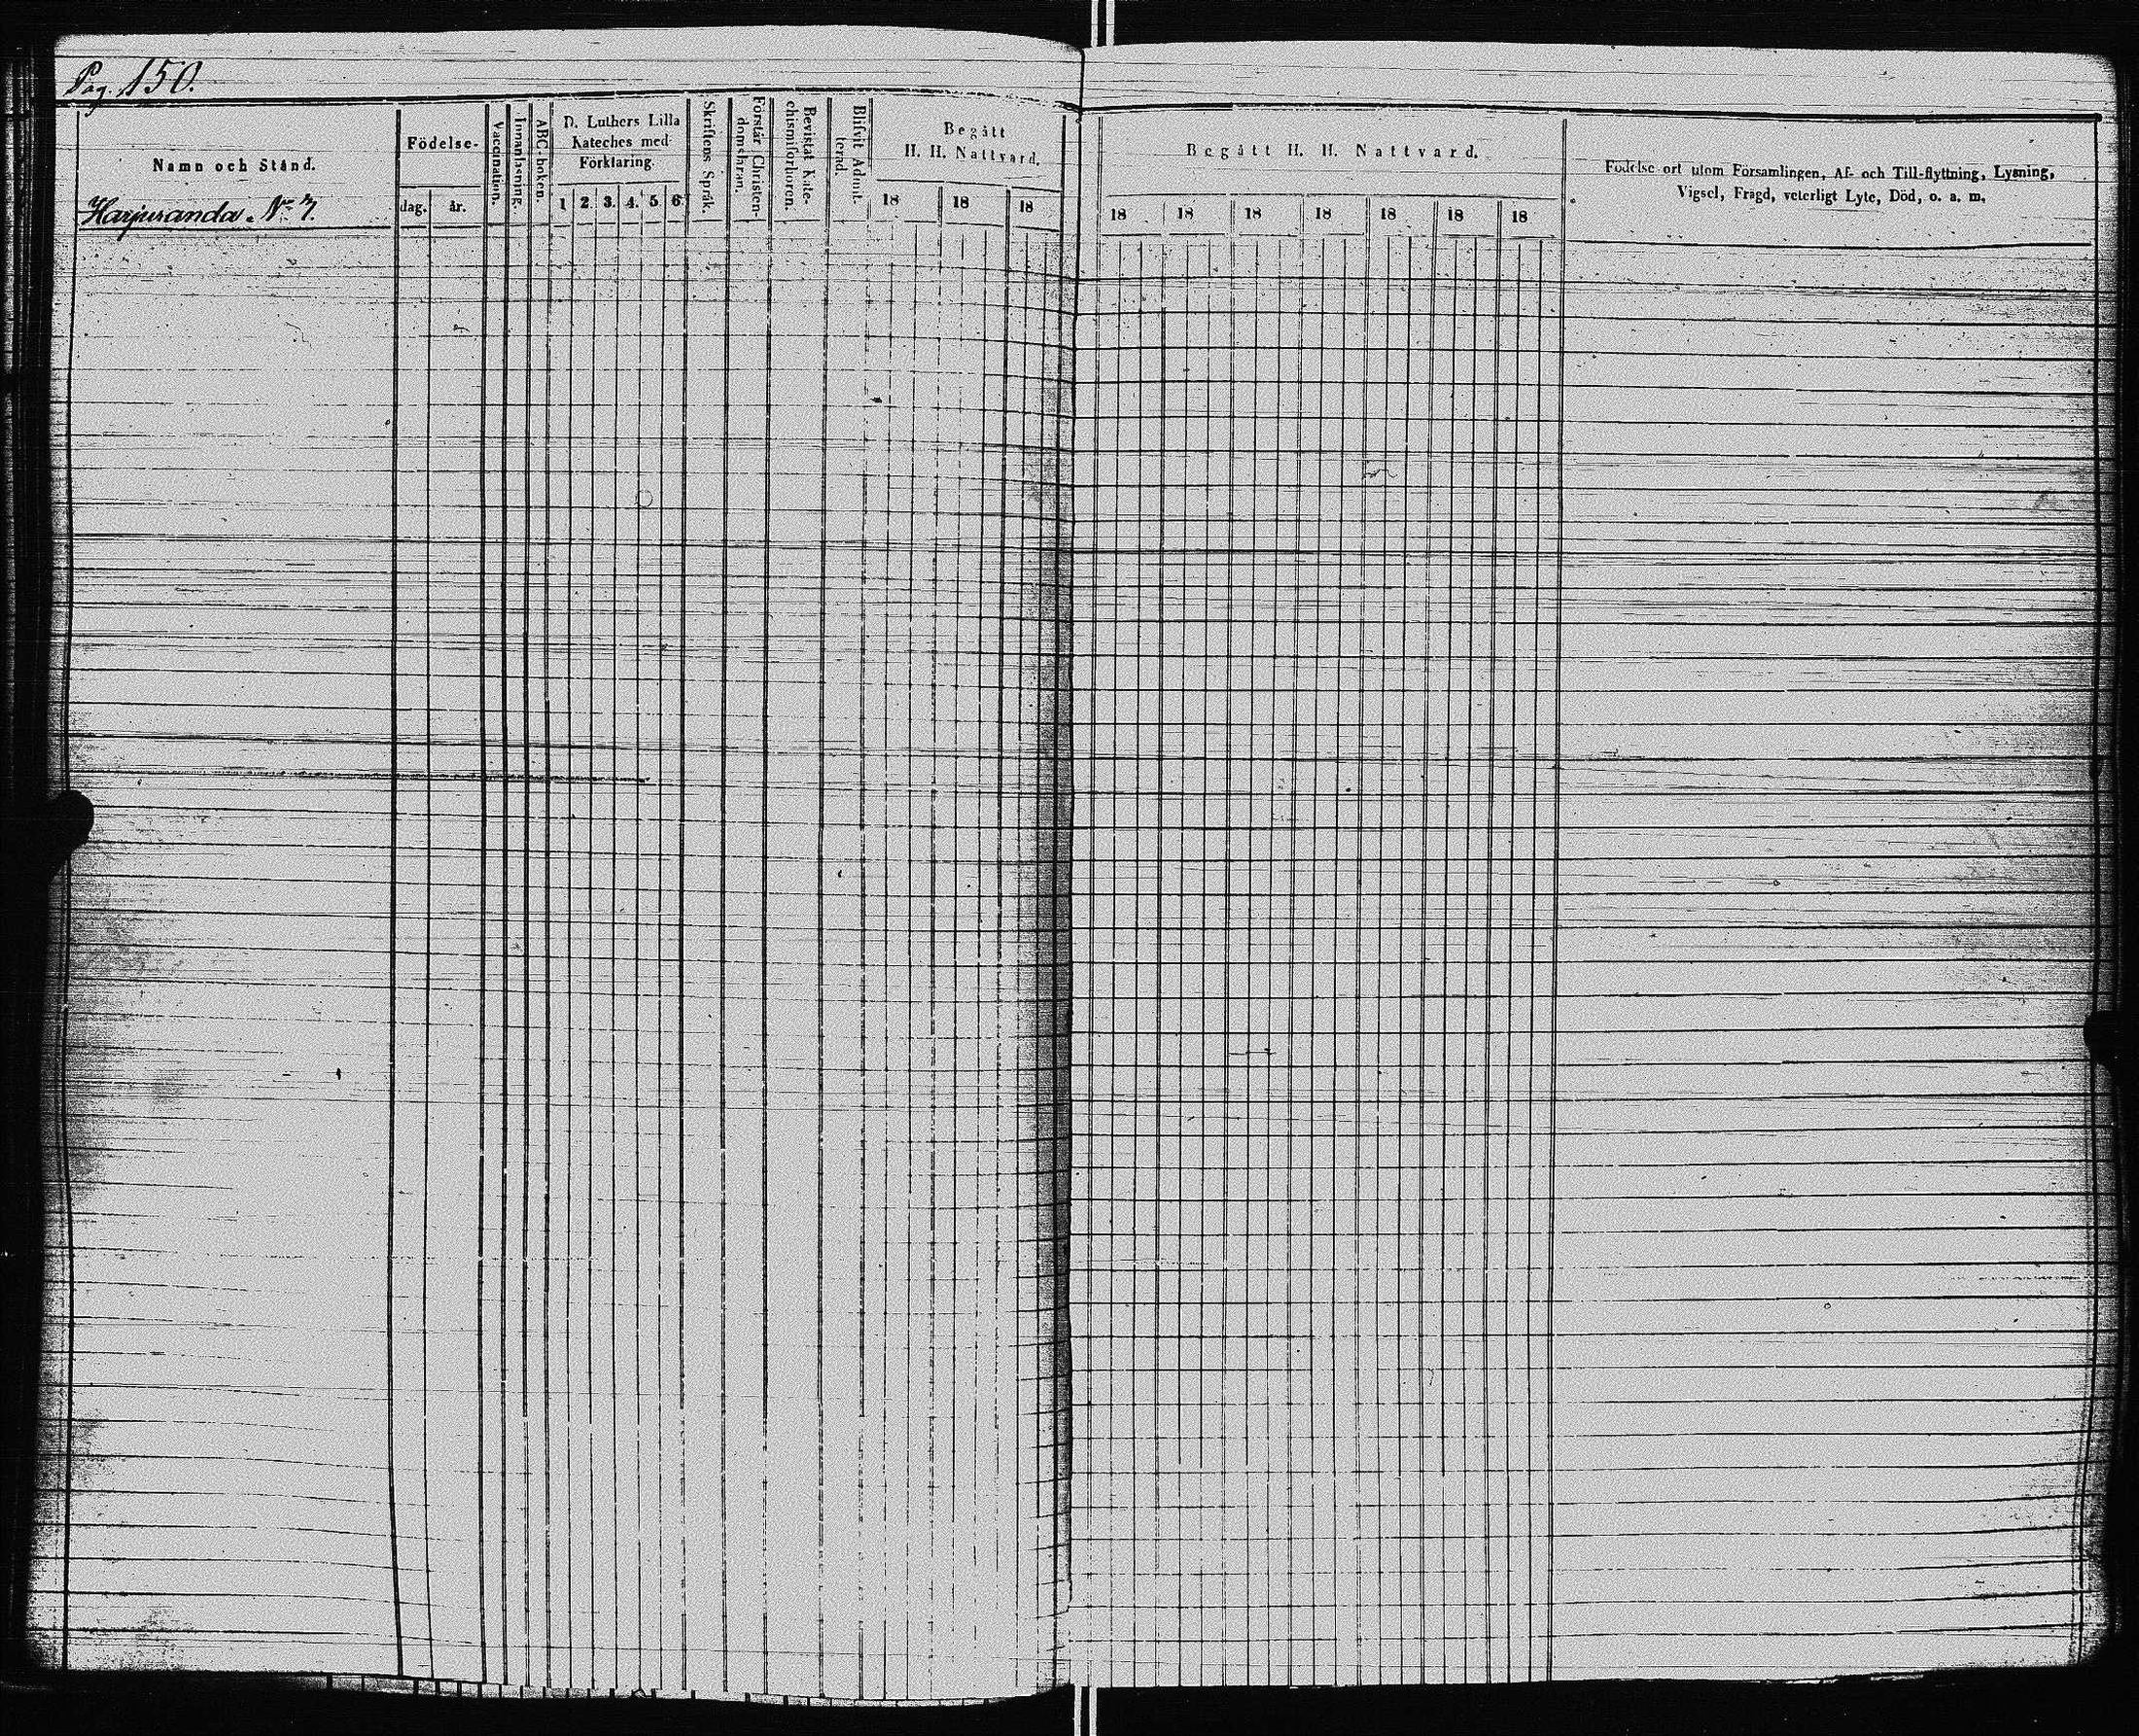 Pag. 150.
Namn och Stånd.
Harjuranda N:o 7.
Födelse-
dag.
år.
Vaccination.
Innanläsning.
ABC-boken.
D. Luthers Lilla
Kateches med
Förklaring.
1 2. 3. 4. 5. 6
Skriftens Språk.
Förstår Christen-
domsläran.
Bevistat Kate-
chismiförhören.
Blifvit Admit-
terad.
Begått
H. H. Nattvard.
18 18 18
Begått H. H. Nattvard.
18 18 18 18 18 18 18
Födelse-ort utom Församlingen, Af- och Till-flyttning, Lysning,
Vigsel, Frägd, veterligt Lyte, Död, o. a. m.